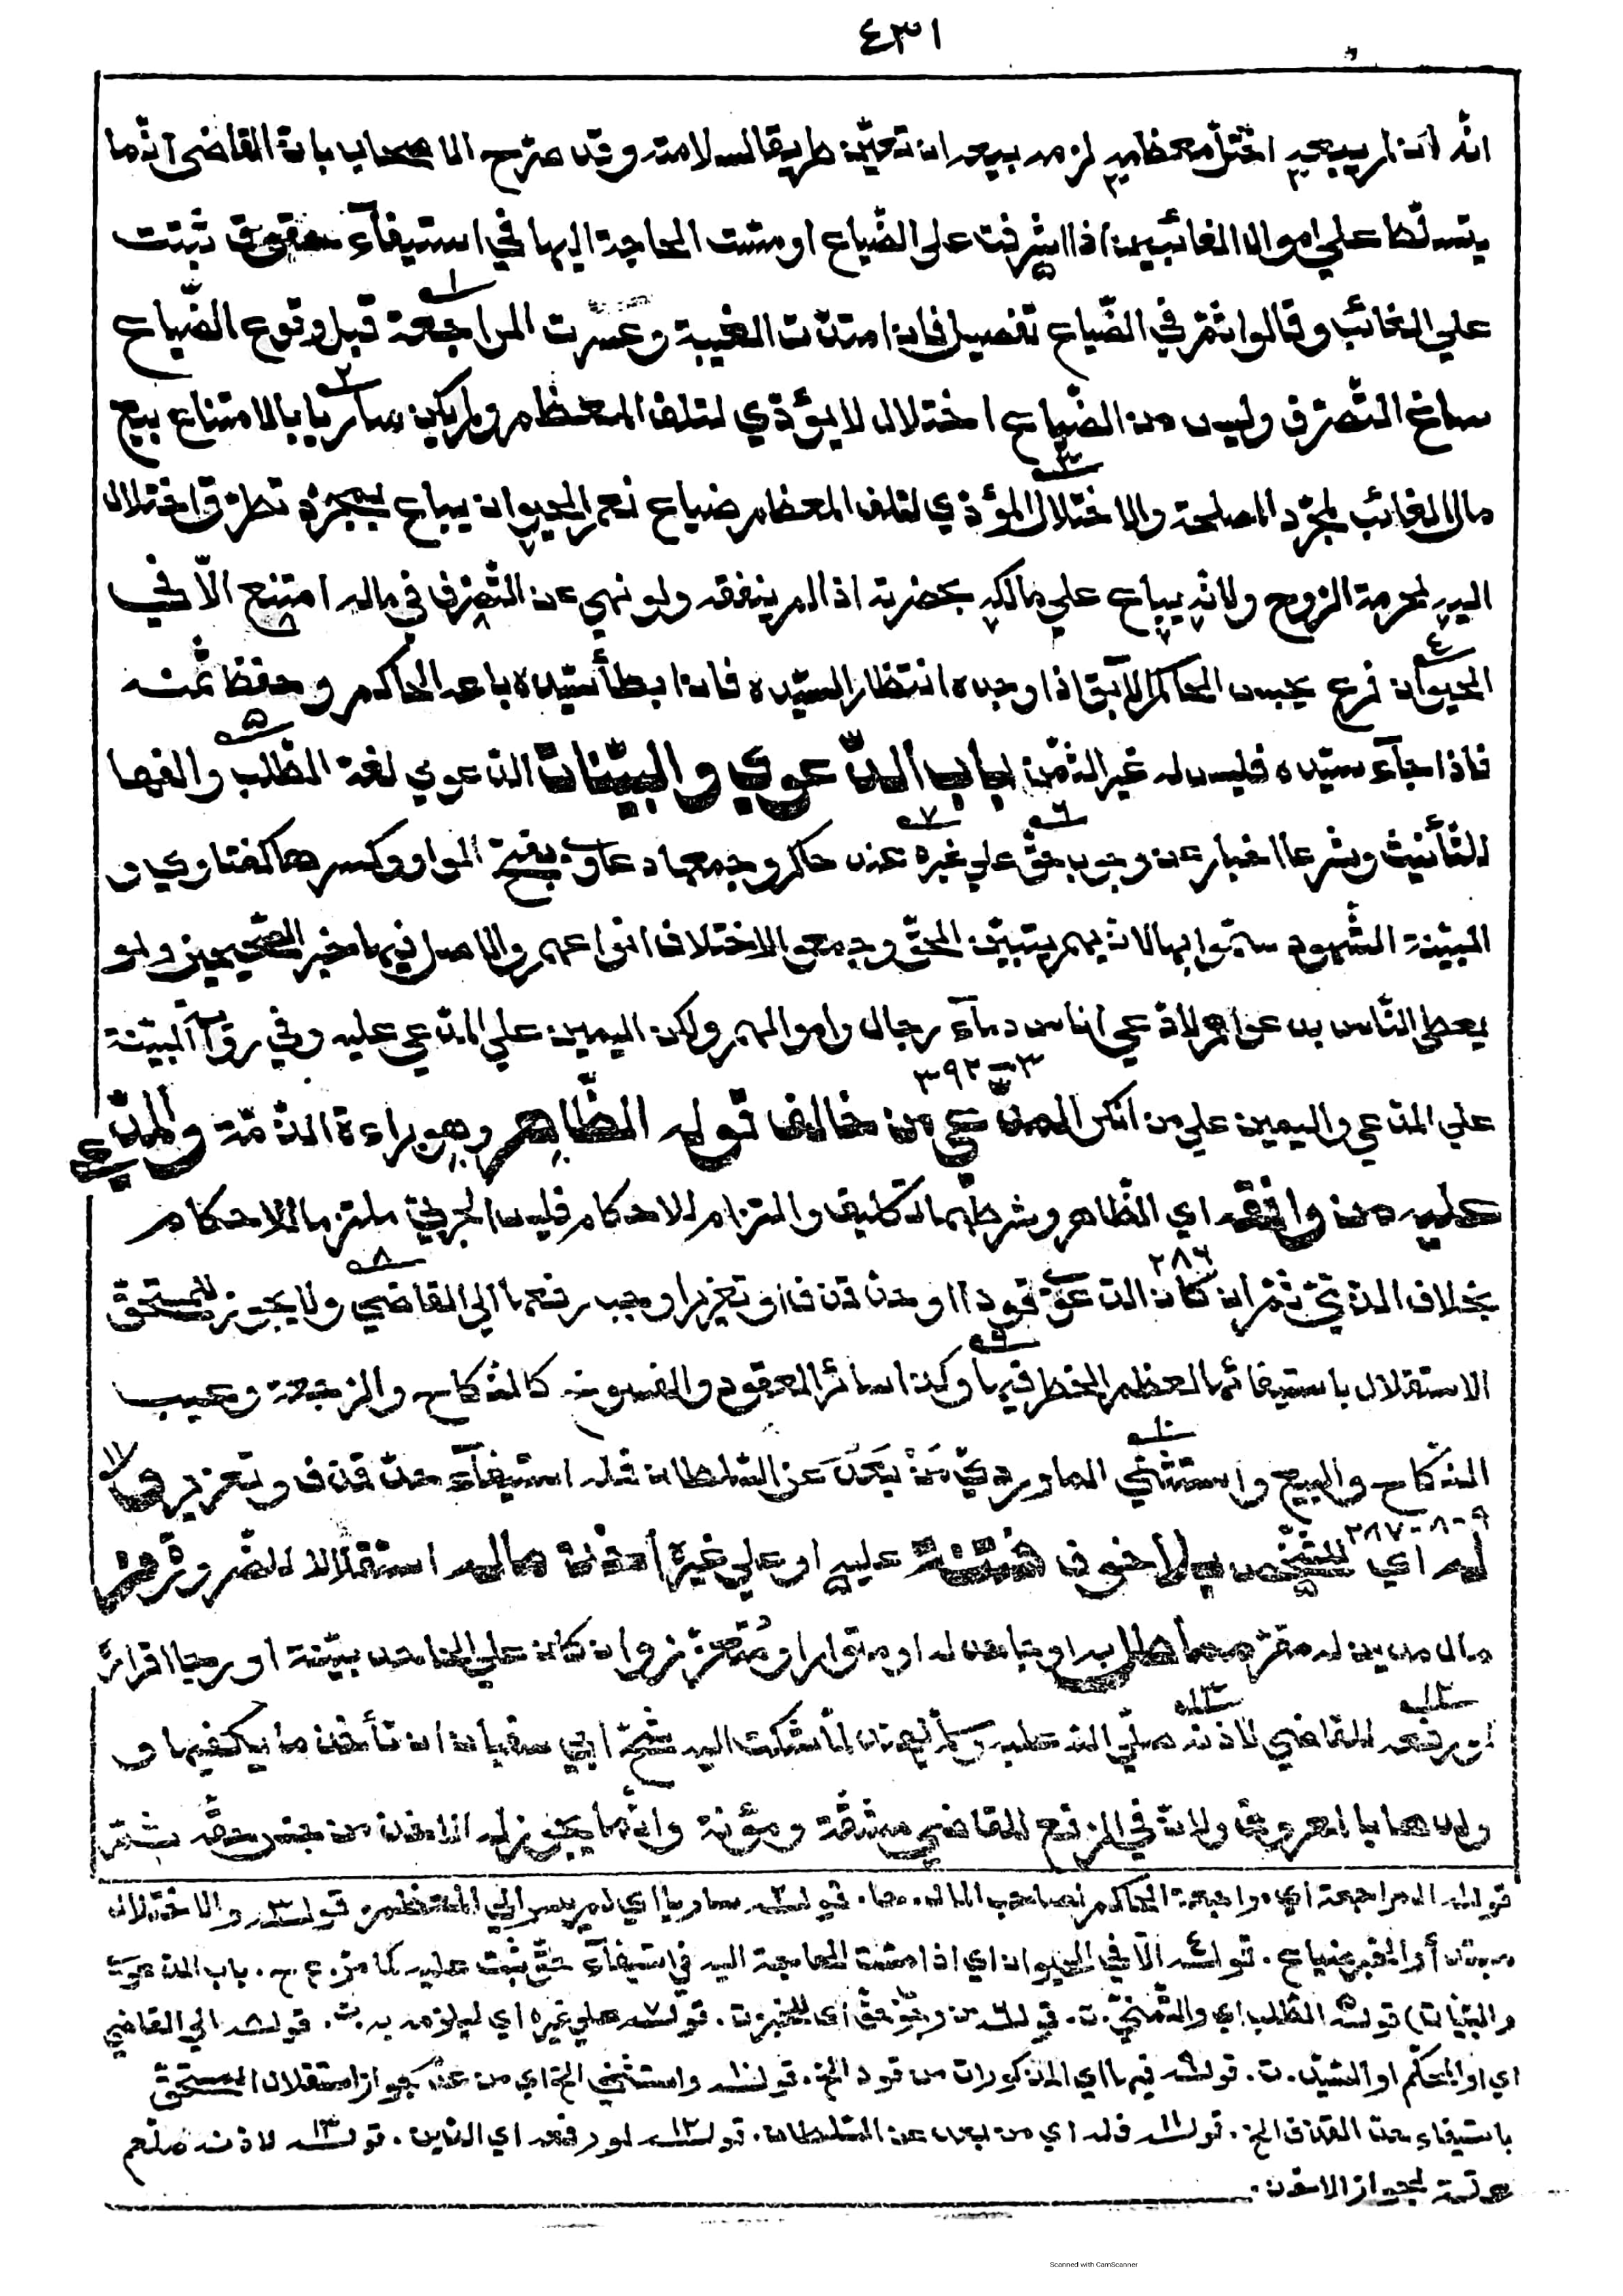 ٤٣١
انّه ان لم يبعه اختلّ معظمه لزمه بيعه ان تعيّن طريقا لسلامته وقد صرّح الاصحاب بان القاضى انّما
يتسلّط على اموال الغائبين اذا اشرفت على الضّياع او مسّت الحاجة اليها في استيفآء حقوق ثبتت
على الغائب وقالوا ثمّ في الضّياع تفصيل فان امتدّت الغيبة وعسّرت المراجعة قبل وقوع الضّياع
ساغ التّصرّف وليس من الضّياع اختلال لا يؤدّي لتلف المعظم ولم يكن ساريا بالامتناع بيع
مال الغائب لمجرّد المصلحة والاختلال المؤدّي لتلف المعظم ضياع نعم الحيوان يباع بمجرّد تطرّق اختلال
اليه لحرمة الرّوح ولانّه يباع علي مالكه بحضرته اذا لم ينفقه ولو نهى عن التّصرّف في ماله امتنع الّا في
الحيوان فرع يحبس الحاكم الآبق اذا وجده انتظارا لسيّده فان ابطأ سيّده باعه الحاكم وحفظ ثمنه
فاذا جآء سيّده فليس له غير الثّمن باب الدّعوي والبيّنات الدّعوي لغة الطّلب والفها
للتّأنيث وشرعا اخبار عن وجوب حقّ علي غيره عند حاكم وجمعها دعاوي بفتح الواو وكسرها كفتاوي و
البيّنة الشّهود سمّوا بها لانّ بهم يتبيّن الحقّ وجمعوا لاختلاف انواعهم والاصل فيها خبر الصّحيحين ولو
يعطى النّاس بدعواهم لادّعي اناس دمآء رجال واموالهم ولكن اليمين علي المدّعي عليه وفي روآية البيّنة
٣-٣٩٢
علي المدّعي واليمين علي من انكر المدّعي من خالف قوله الظّاهر وهو براءة الذّمّة والمدّعي
عليه من وافقه اي الظّاهر وشرطهما تكليف والتزام للاحكام فليس الحربيّ ملتزما للاحكام
بخلاف الذّمّيّ ثمّ ان كان الدّعوي قودا او حدّ قذف او تعزيرا وجب رفعها الي القاضي ولا يجوز للمستحقّ
٢٨٦
الاستقلال باستيفائها لعظم الخطر فيها وكذا سائر العقود والفسوخ كالنّكاح والرّجعة وعيب
النّكاح والبيع واستثني الماورديّ مَنْ بَعُدَ عن السّلطان فله استيفآء حدّ قذف وتعزير وله
٩-٨-٢٨٧
اي للشّخص بلا خوف فتنة عليه او علي غيره أخذ ماله استقلالا للضّرورة من
مال مدين له مقرّ مماطل به او جاحد له او متوار او مُتعزّز وان كان علي الجاحد بيّنة او رجا اقراره
لو رفعه للقاضي لاذنه صلّي الله عليه وسلّم لهند لمّا شكت اليه شحّ ابي سفيان ان تأخذ ما يكفيها و
ولدها بالمعروف ولانّ في الرّفع للقاضي مشقّة ومؤنة وانّما يجوز له الاخذ من جنس حقّه ثمّ
قوله المراجعة اي مراجعة الحاكم لصاحب المال. قوله٢ ساريا اي لم يسر الي المعظم. قوله٣ والاختلال
مبتدأ والخبر ضياع. قوله٤ الّا في الحيوان اي اذا مسّت الحاجة اليه في استيفآء حقّ ثبت عليه كما مرّ. ع ح. باب الدّعوي
والبيّنات) قوله٥ الطّلب اي والتّمنّي. ت. قوله٦ عن وجوب حقّ اي للمخبر ت. قوله٧ علي غيره اي ليلزمه به. ت. قوله٨ الي القاضي
اي او المحكّم او السّيّد. ت. قوله٩ فيها اي المذكورات من قود الخ. قوله١٠ واستثني الخ اي من عدم جواز استقلال المستحقّ
باستيفاء حدّ القذف الخ. قوله١١ فله اي من بعد عن السّلطان. قوله١٢ لو رفعه اي الدّاين. قوله١٣ لاذنه صلعم
علّة لجواز الاخذ.
Scanned with CamScanner